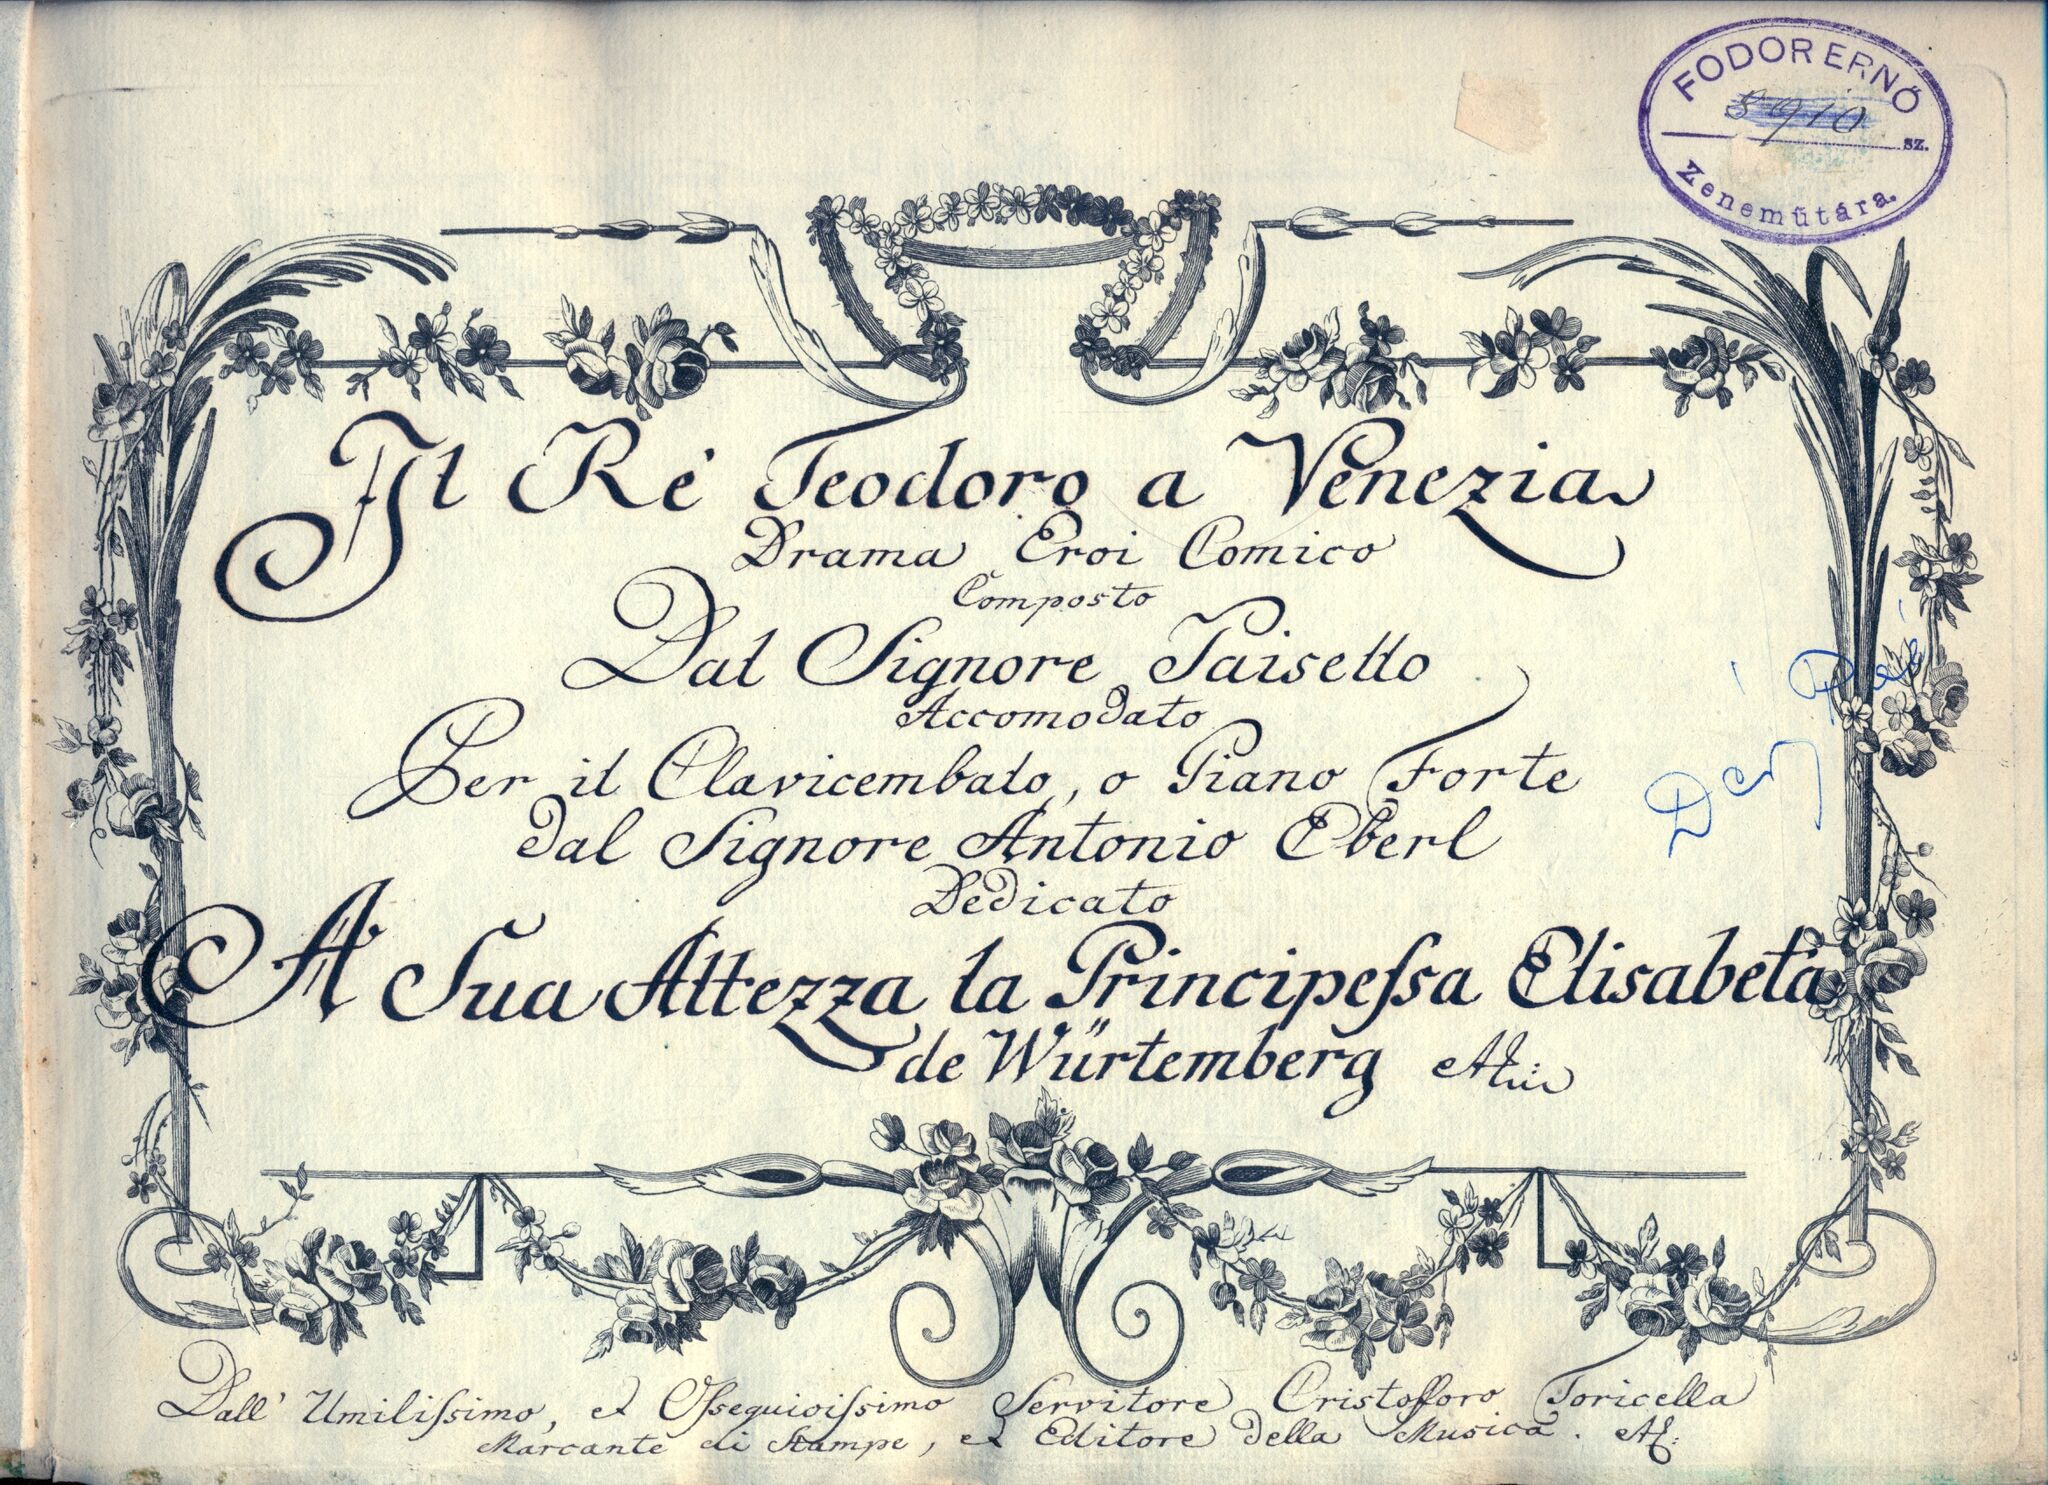 FODOR ERNŐ
8910
sz.
Zeneműtára.
Il Ré Teodoro a Venezia
Drama Eroi Comico
Composto
Dal Signore Paisello
Accomodato
Per il Clavicembalo, o Piano Forte
dal Signore Antonio Eberl
Dedicato
A Sua Altezza la Principeſsa Elisabeta
de Würtemberg
Dall' Umiliſsimo, et Oſsequioiſsimo Servitore Cristofforo Toricella
Marcante di Stampe, et Editore Della Musica.